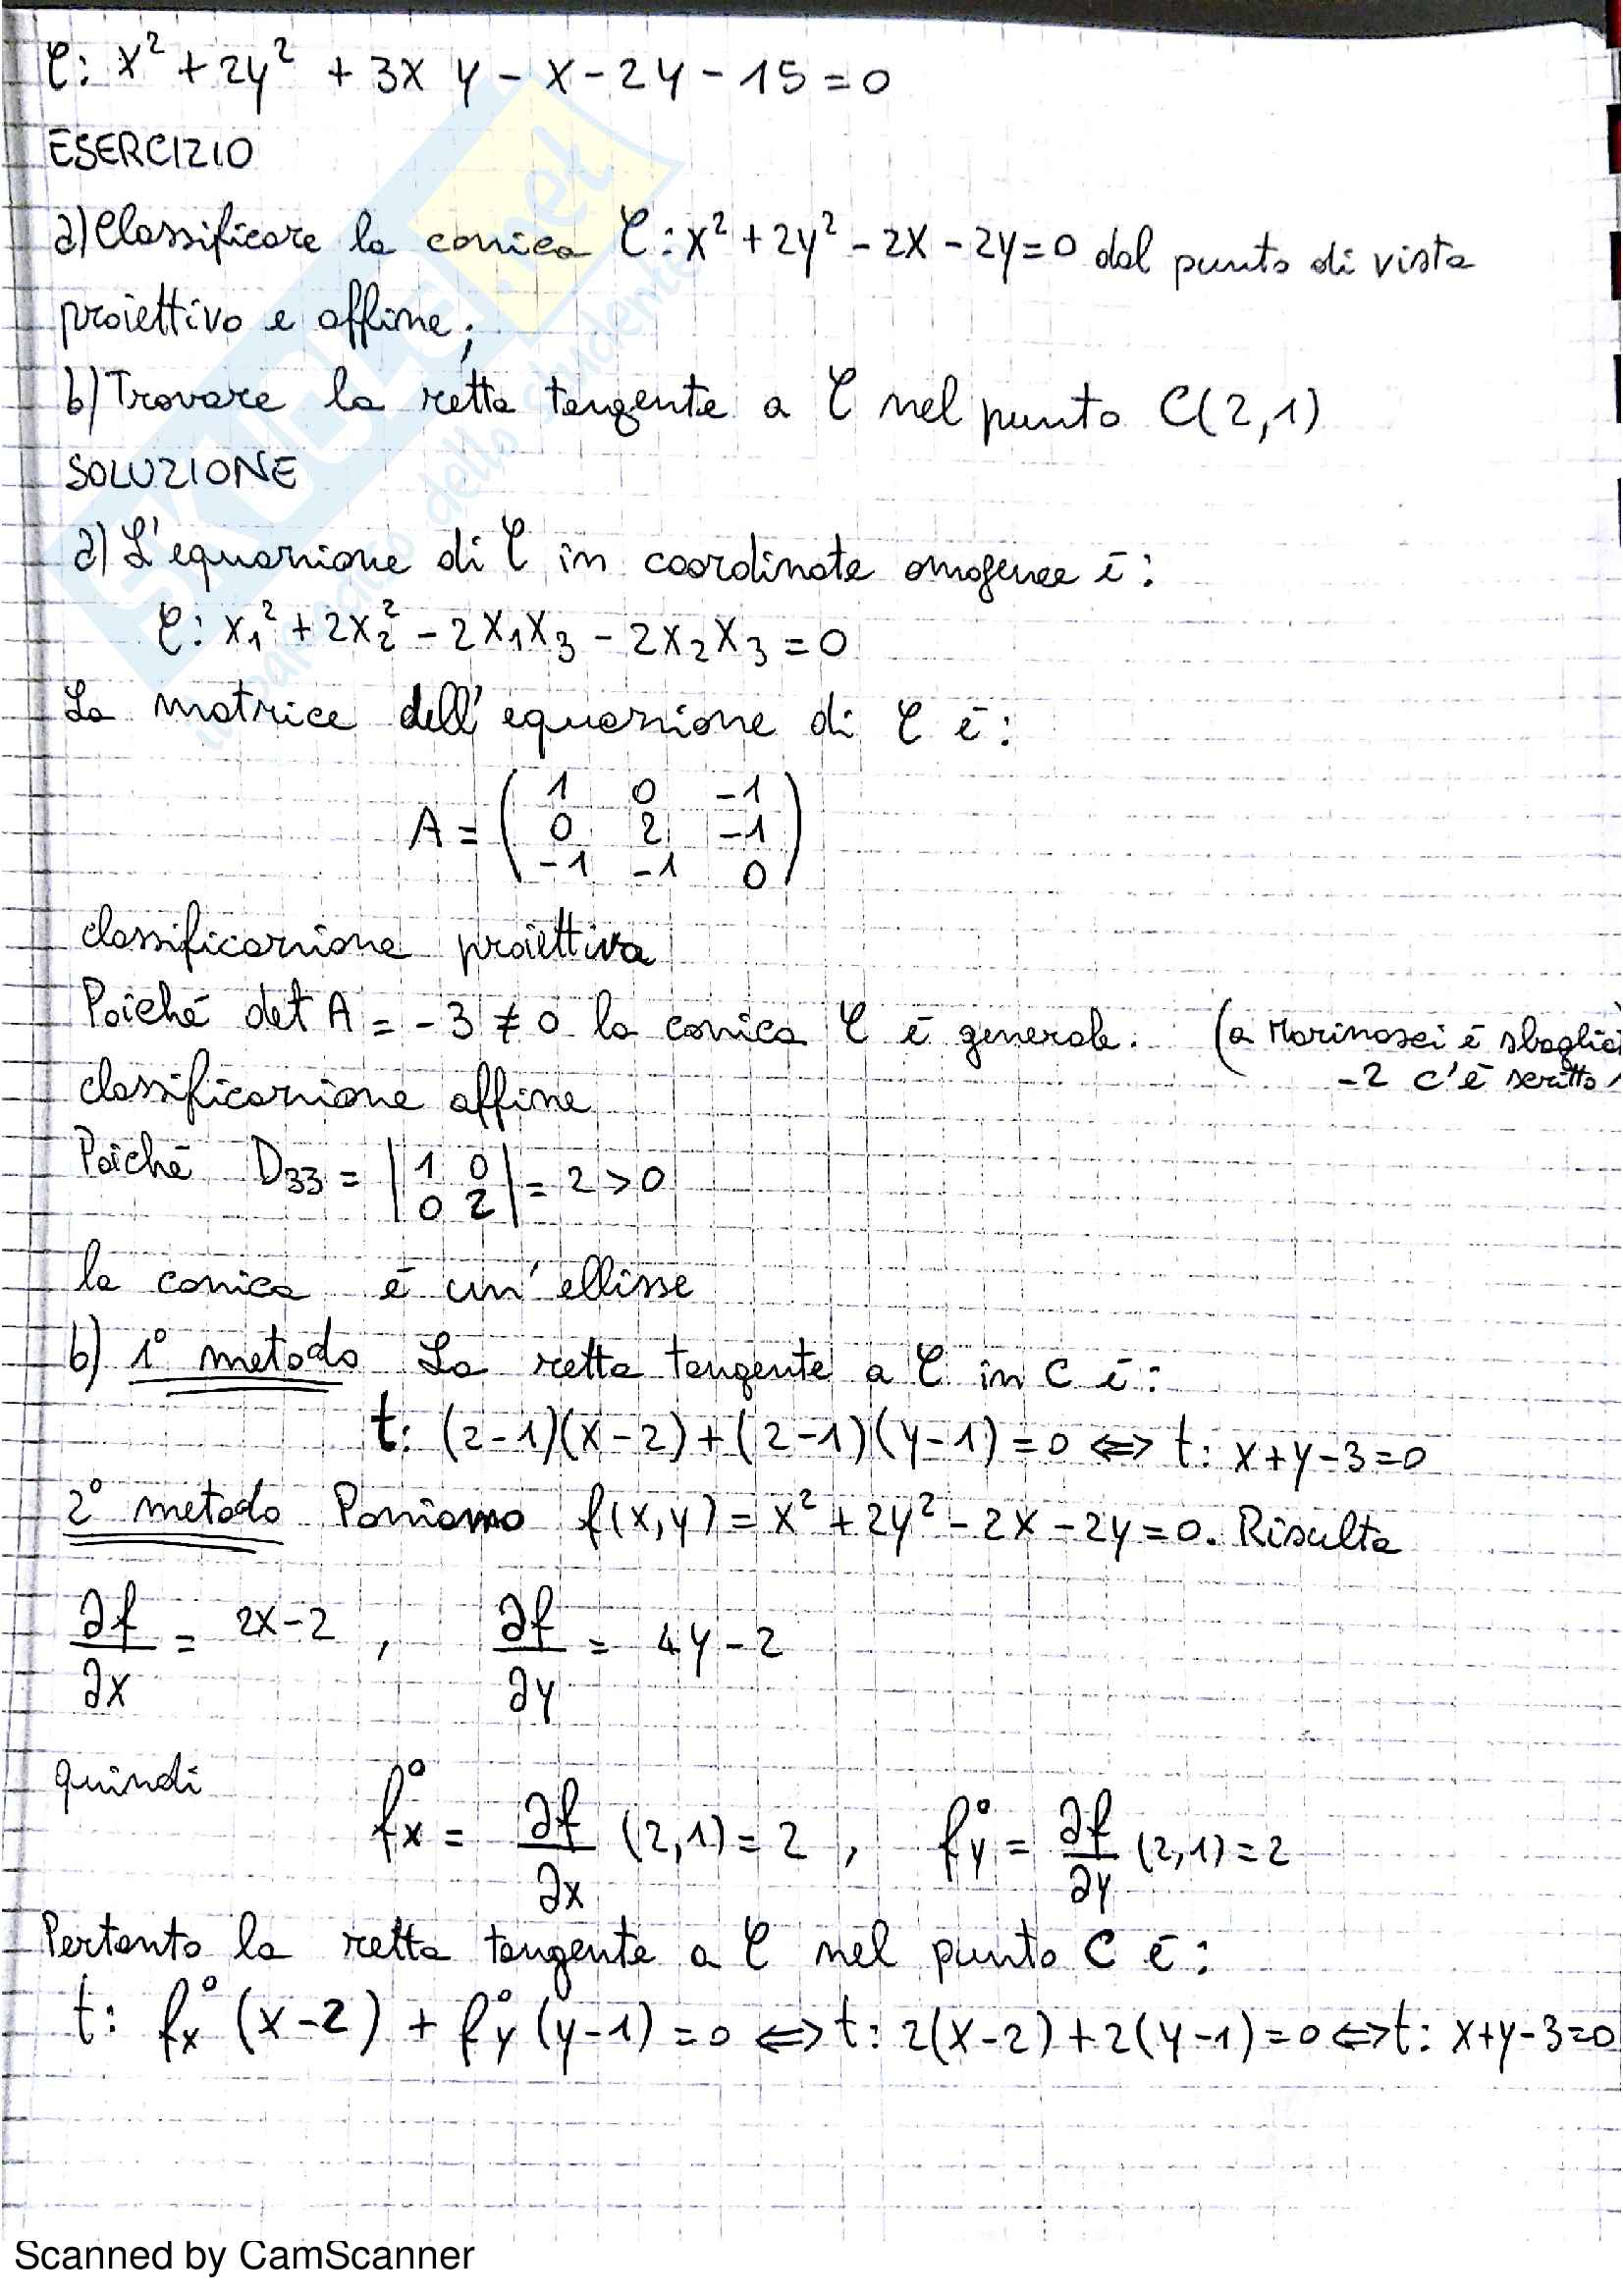 C: x² + 2y² + 3xy - x - 2y - 15 = 0
ESERCIZIO
a) Classificare la conica C: x² + 2y² - 2x - 2y = 0 dal punto di vista
proiettivo e affine;
b) Trovare la retta tangente a C nel punto C(2,1)
SOLUZIONE
a) L'equazione di C in coordinate omogenee è:
C: x₁² + 2x₂² - 2x₁x₃ - 2x₂x₃ = 0
La matrice dell'equazione di C è:
1 0 -1
A = ( 0 2 -1 )
-1 -1 0
classificazione proiettiva
Poiché det A = -3 ≠ 0 la conica C è generale. (a Marinosci è
-2 c'è scritto
classificazione affine
Poiché D₃₃ = | 1 0 | = 2 > 0
0 2
la conica è un'ellisse
b) 1° metodo La retta tangente a C in C è:
t: (2-1)(x-2) + (2-1)(y-1) = 0 ⇔ t: x+y-3=0
2° metodo Poniamo f(x,y) = x² + 2y² - 2x - 2y = 0. Risulta
∂f/∂x = 2x-2 , ∂f/∂y = 4y-2
quindi fx° = ∂f/∂x (2,1) = 2 , fy° = ∂f/∂y (2,1) = 2
Pertanto la retta tangente a C nel punto C è:
t: fx° (x-2) + fy° (y-1) = 0 ⇔ t: 2(x-2) + 2(y-1) = 0 ⇔ t: x+y-3=0
SKUOLA.net
il paradiso dello studente
Scanned by CamScanner